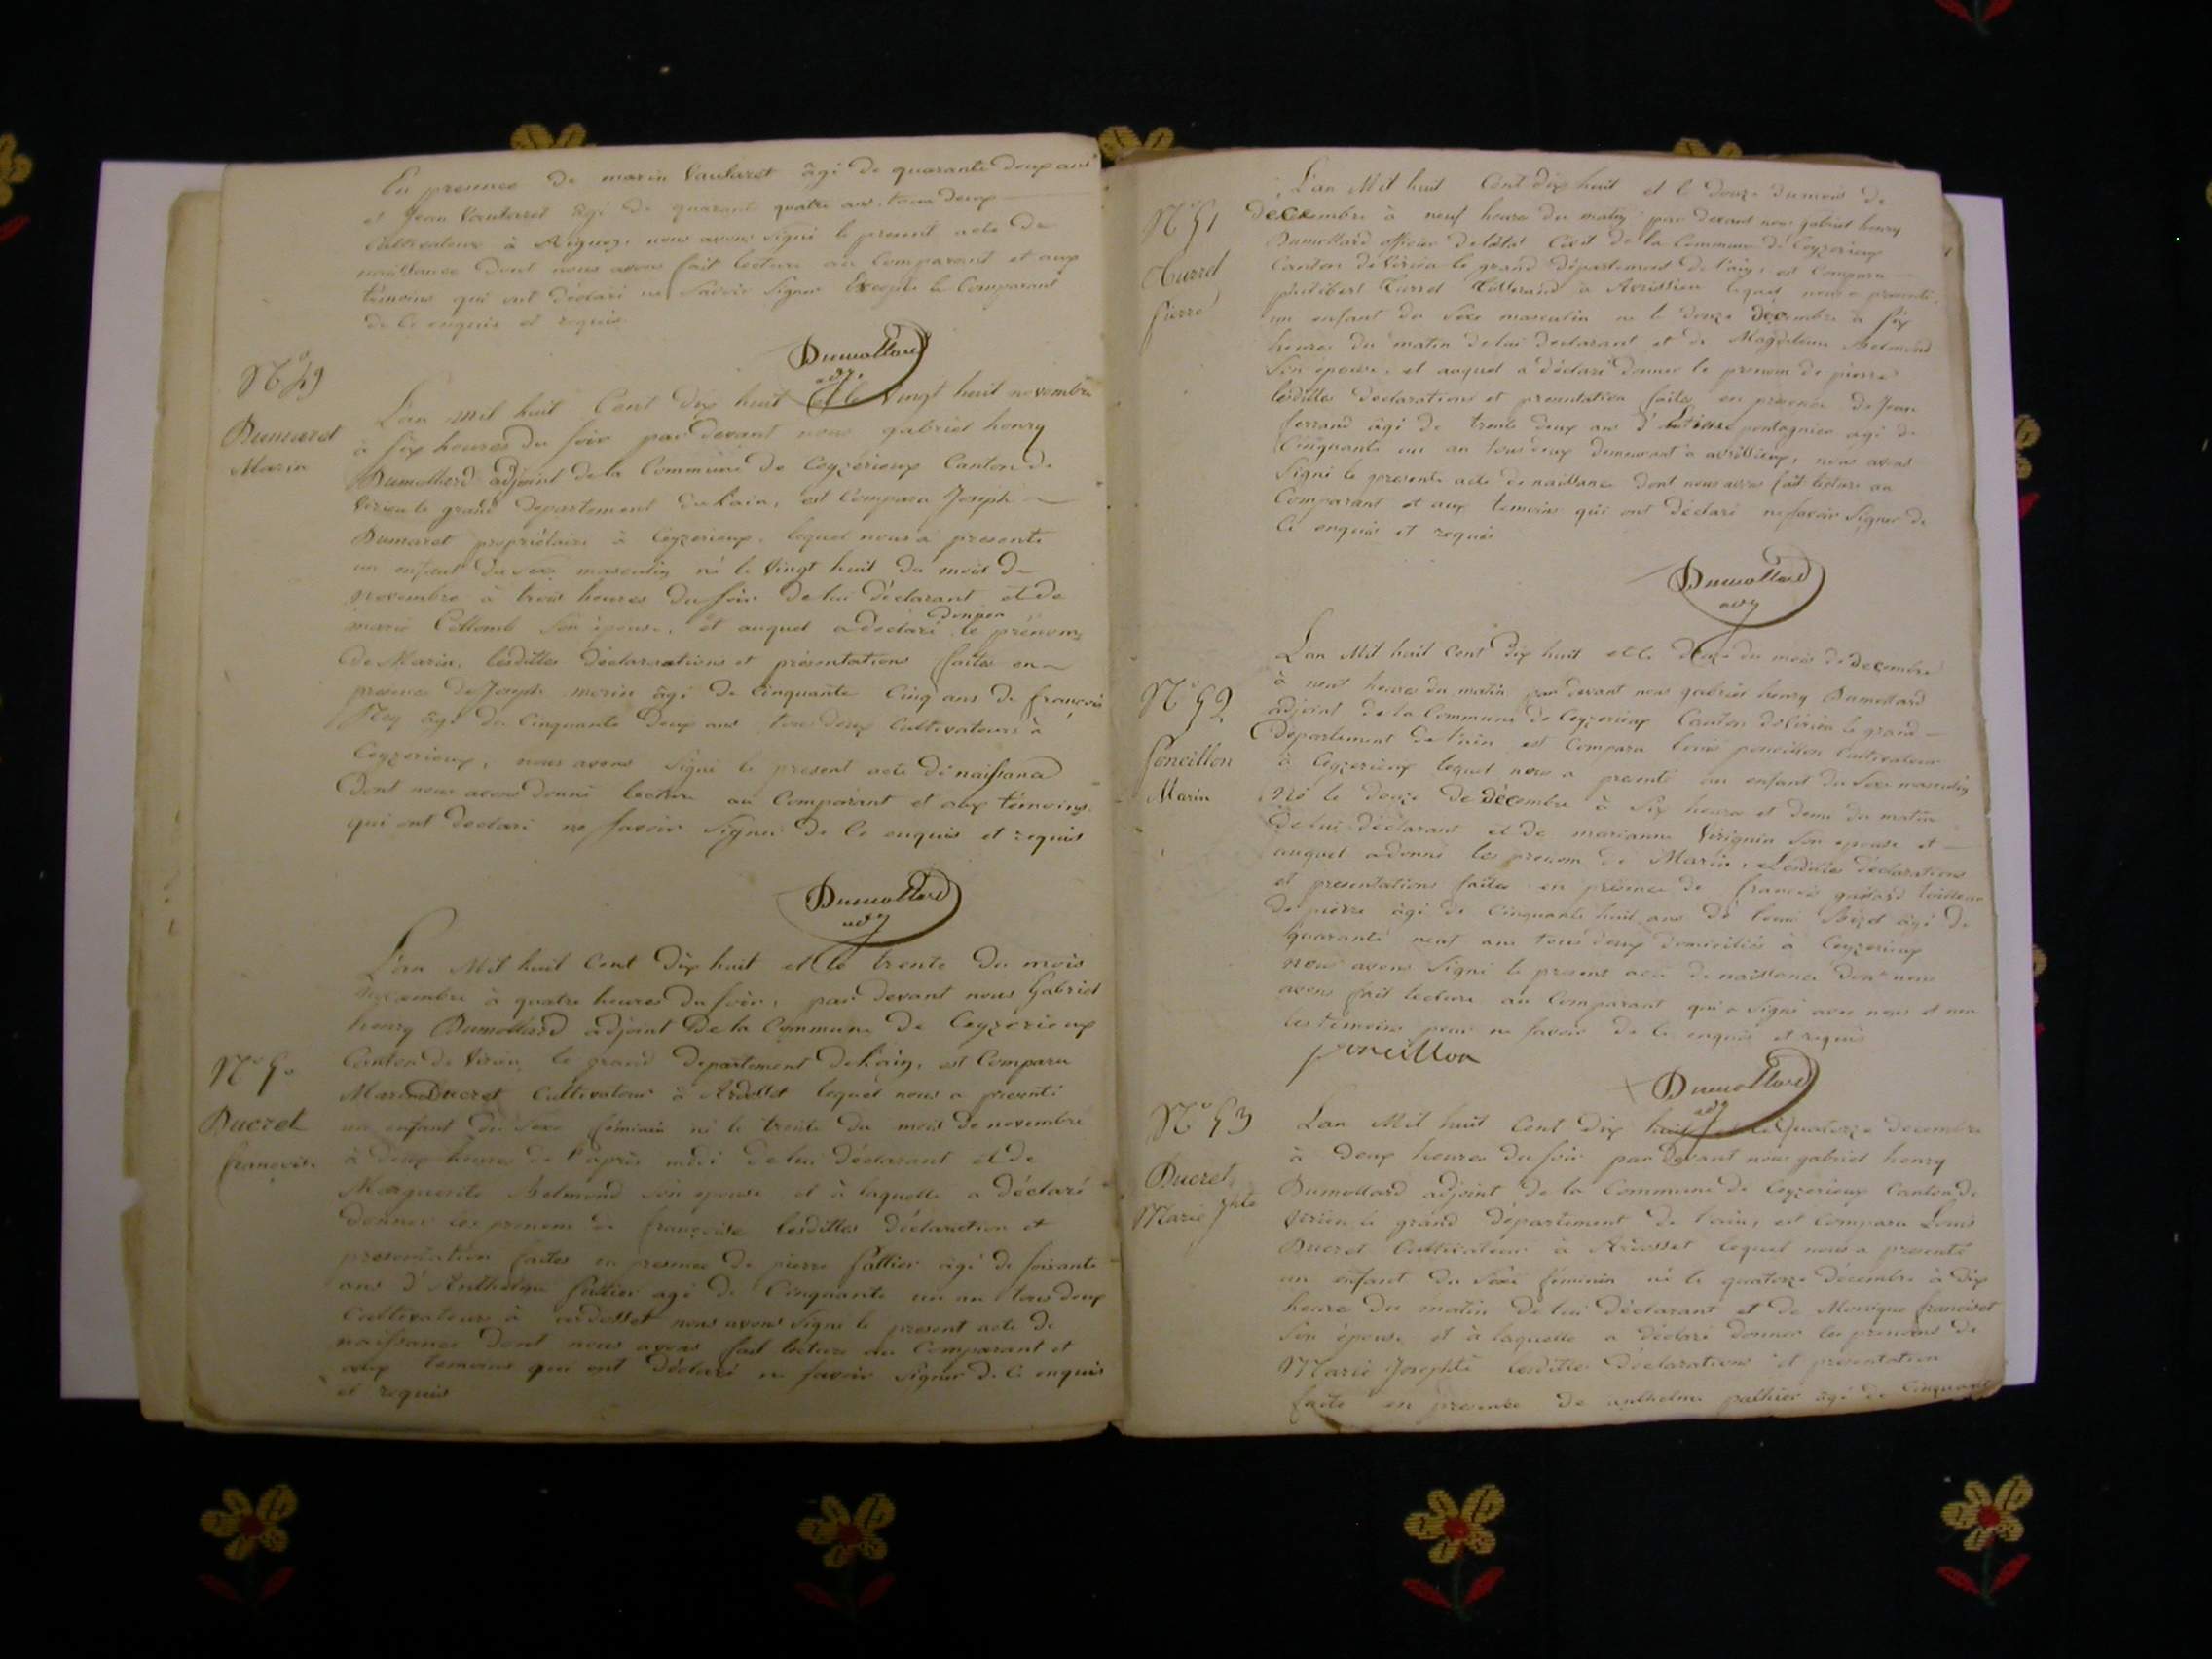 En presence de marin Vautaret âgé de quarante deux ans
et Jean Vautaret âgé de quarante quatre ans. tous deux
Cultivateurs à nous avons signé le present acte de
naissance dont nous avons fait lecture au Comparant et aux
témoins qui ont déclaré ne savoir signer Excepté le Comparant
de ce enquis et requis.
Dumollard
adj.
N° 49
Dumaret
Marin
L'an mil huit Cent dix huit et le Vingt huit novembre
à six heures du soir par devant nous gabriel henry
Dumollard adjoint de la Commune de Ceyzerieux Canton de
Virieu le grand Departement de Lain, est Comparu Joseph
Dumaret propriétaire à Ceyzerieux, lequel nous a presenté
un enfant du sexe masculin né le Vingt huit du mois de
novembre à trois heures du soir de lui déclarant et de
marie Collomb son épouse, et auquel a declaré donner le prénom
de Marin, lesdittes déclarations et présentations faites en
presence de Joseph morin âgé de Cinquante Cinq ans de françois
Rey âgé de Cinquante deux ans tous deux Cultivateurs à
Ceyzerieux, nous avons signé le present acte de naissance
Dont nous avons donné lecture au Comparant et aux témoins
qui ont declaré ne savoir signer de Ce enquis et requis
Dumollard
adj
N° 50
Ducret
françoise
L'an Mil huit Cent Dix huit et le trente du mois
novembre à quatre heures du soir, par devant nous Gabriel
henry Dumollard adjoint de la Commune de Ceyzerieux
Canton de Virieu le grand departement de Lain, est Comparu
Marin Ducret Cultivateur à Ardosset lequel nous a presenté
un enfant du sexe féminin né le trente du mois de novembre
à deux heures de l'après midi de lui déclarant et de
Marguerite Belmond son épouse et à laquelle a déclaré
donner les prenom de françoise lesdittes déclaration et
presentation faites en presence de pierre pallier âgé de soixante
ans d'Anthelme pallier agé de Cinquante un an tous deux
Cultivateurs à ardosset nous avons signé le present acte de
naissance dont nous avons fait lecture au Comparant et
aux temoins qui ont déclaré ne savoir signer de Ce enquis
et requis
N° 51
Curret
pierre
L'an Mil huit Cent dix huit et le douze du mois de
decembre à neuf heures du matin par devant nous gabriel henry
Dumollard officier de létat Civil de la Commune de Ceyzerieux
Canton de Virieu le grand département de l'ain, est Comparu
philibert Curret à Avrissieu lequel nous a presenté
un enfant du sexe masculin né le douze decembre à six
heures du matin de lui declarant et de Magdeleine Belmond
son épouse, et auquel a déclaré donner le prenom de pierre
lesdittes declarations et presentation faites en presence de Jean
ferrand âgé de trente deux ans d' pontagnier agé de
Cinquante un an tous deux demeurant à avrissieux, nous avons
signé le present acte de naissance dont nous avons fait lecture au
Comparant et aux temoins qui ont déclaré ne savoir signer de
Ce enquis et requis
Dumollard
adj
N° 52
Poncillon
Marin
L'an Mil huit Cent Dix huit et le douze du mois de decembre
à neuf heures du matin par devant nous gabriel henry Dumollard
adjoint de la Commune de Ceyzerieux Canton de Virieu le grand
Departement de l'ain est Comparu louis poncillon Cultivateur
à Ceyzerieux lequel nous a presenté un enfant du sexe masculin
né le douze de décembre à six heures et demi du matin
de lui déclarant et de marianne Virignin son epouse et
auquel a donné les prenom de Marin. Lesdittes déclarations
et presentations faites en présence de françois tailleur
de pierre âgé de Cinquante huit ans de louis âgé de
quarante neuf ans tous deux domiciliés à Ceyzerieux
nous avons signé le present acte de naissance dont nous
avons fait lecture au Comparant qui a signé avec nous et non
les témoins pour ne savoir de ce enquis et requis
poncillon
Dumollard
adj
N° 53
Ducret
Marie Jphte
L'an Mil huit Cent Dix huit et le quatorze decembre
à Deux heures du soir par devant nous gabriel henry
Dumollard adjoint de la Commune de Ceyzerieux Canton de
Virieu le grand département de l'ain, est Comparu Louis
Ducret Cultivateur à Ardosset lequel nous a presenté
un enfant du sexe féminin né le quatorze décembre à dix
heure du matin de lui déclarant et de Monique francoset
son épouse et à laquelle a déclaré donner les prenoms de
Marie Josephte lesdittes déclarations et presentation
faite en presence de anthelme pallier âgé de Cinquante